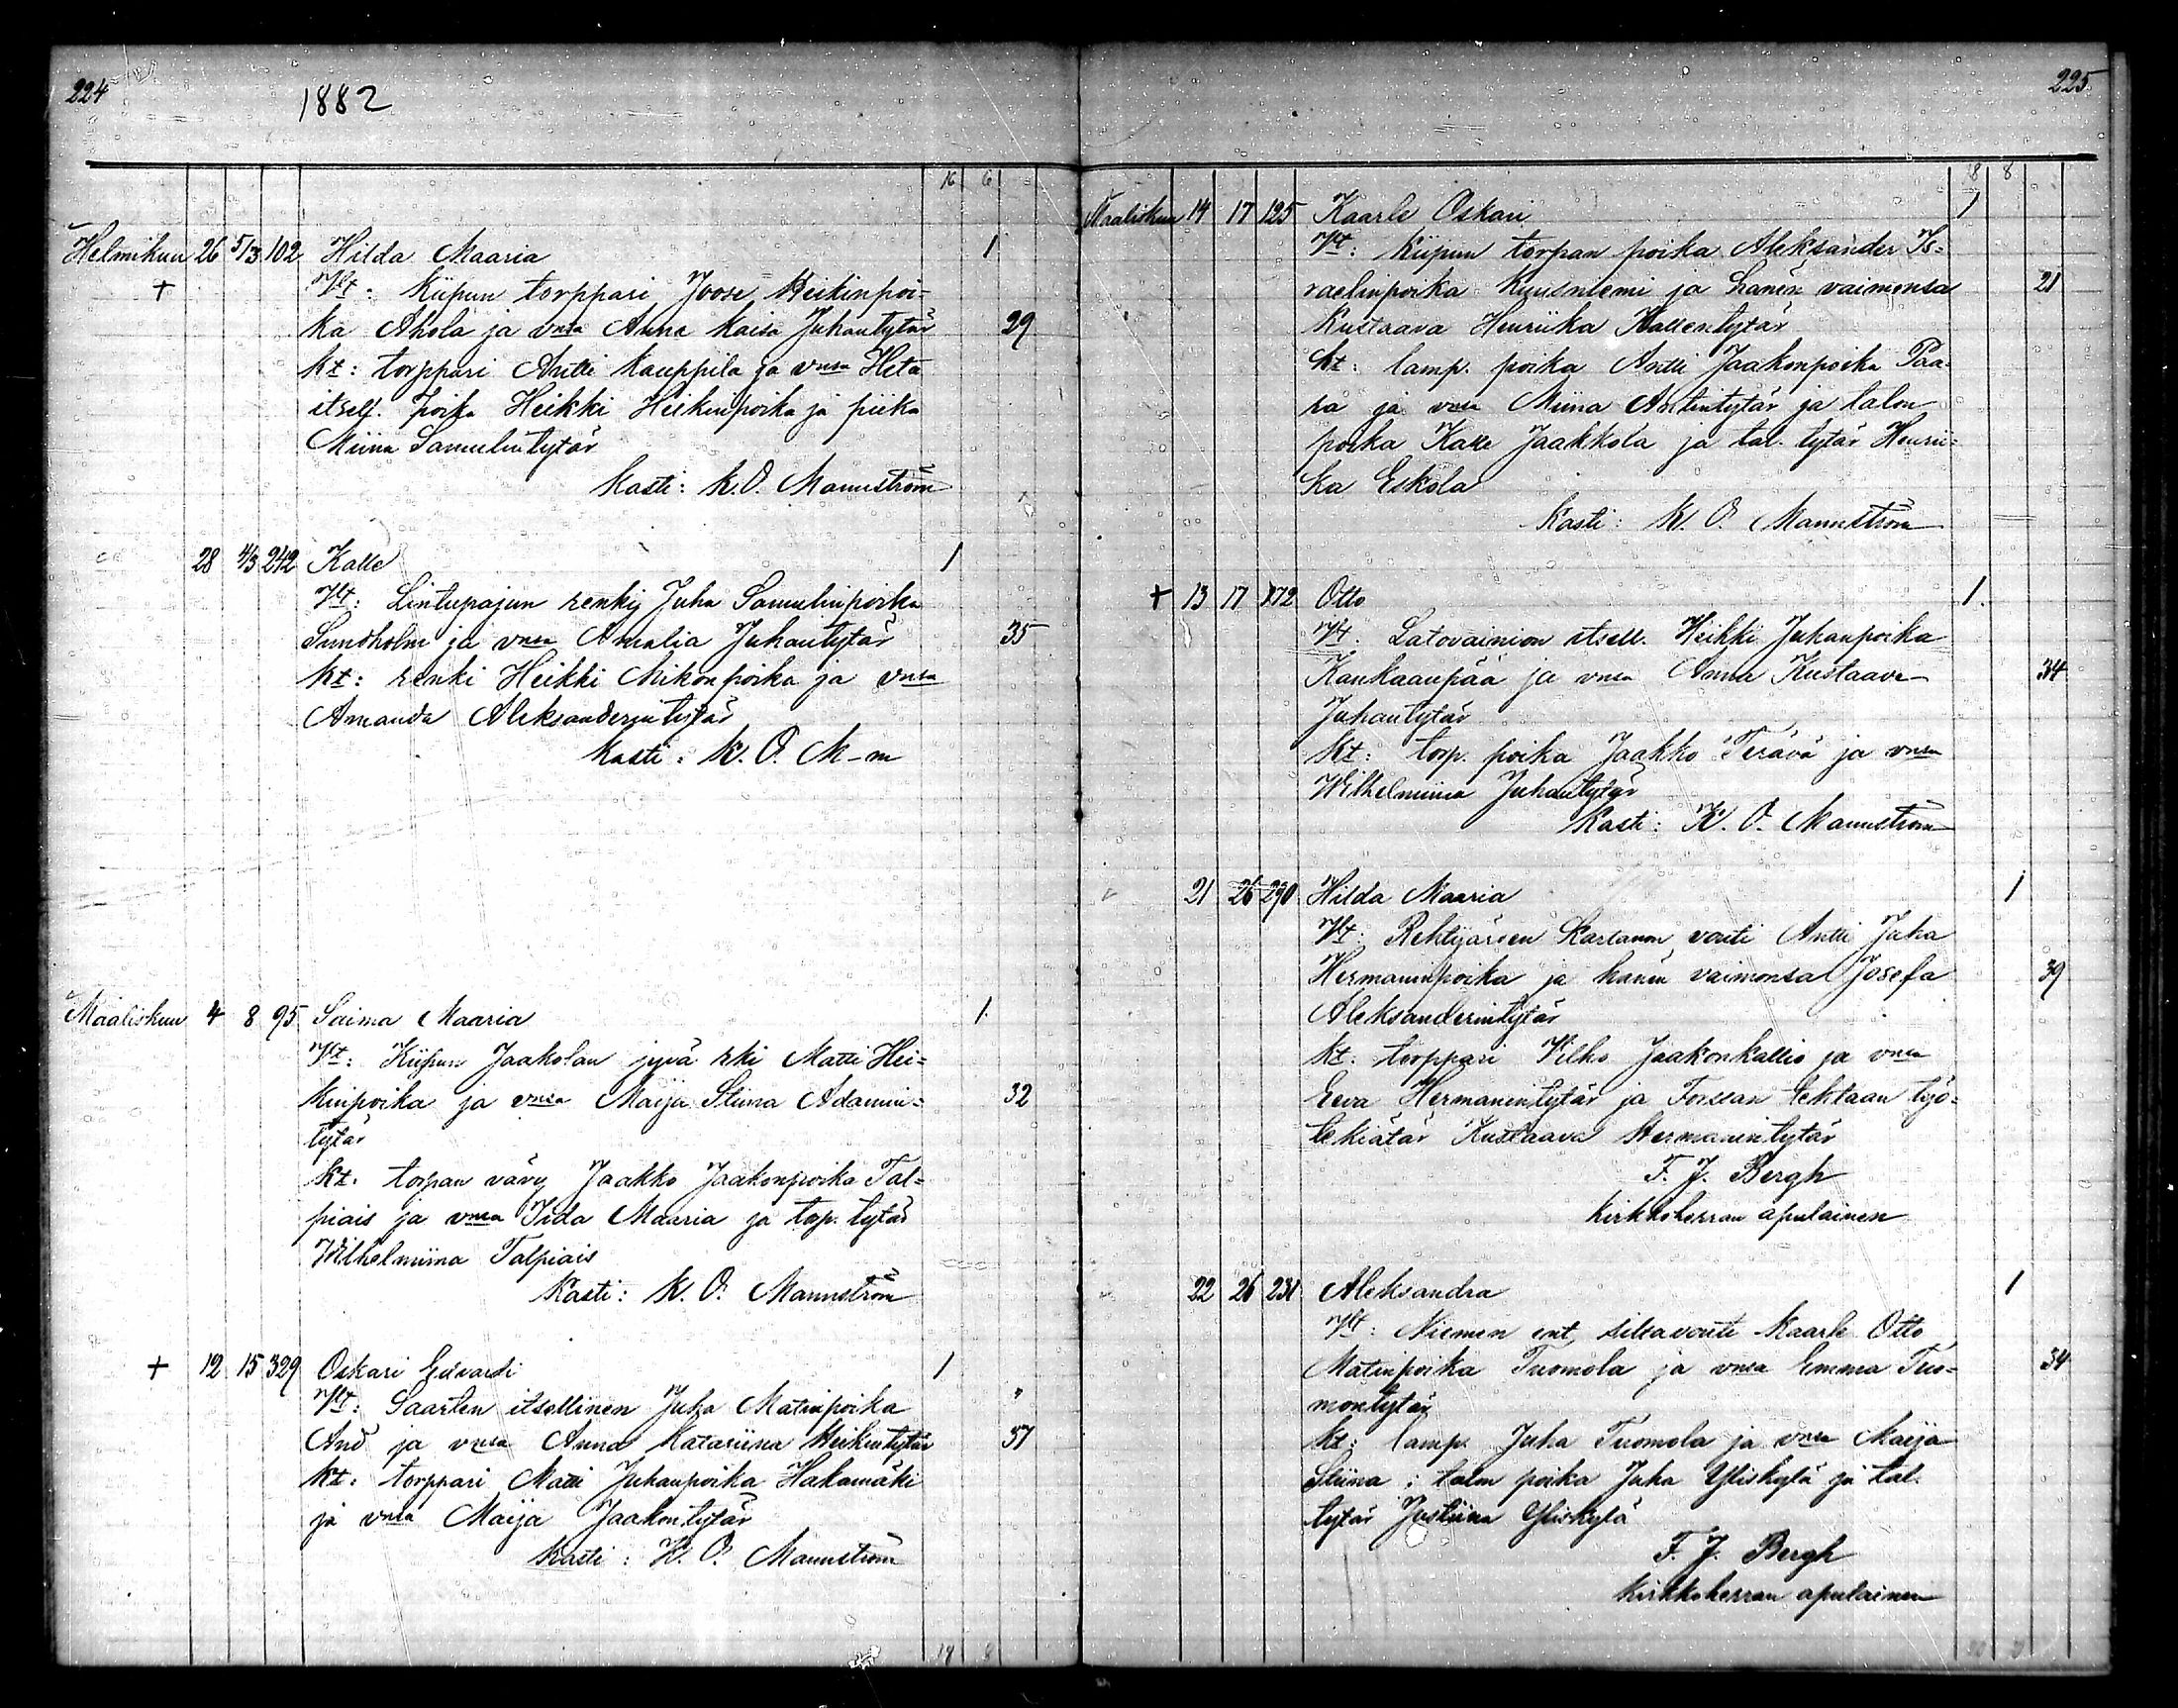 224
1882
16 6
Helmikuu 26 5/3 102 Hilda Maaria 1
+ Vt: Kiipun torppari Joose Heikinpoi-
ka Ahola ja vnsa Anna Kaisa Juhantytär 29
Kt: torppari Antti Kauppila ja vnsa Heta
itsell. poika Heikki Heikinpoika ja piika
Miina Samulintytär
Kasti: K. O. Mannström
28 4/3 242 Kalle 1
Vt: Lintupajun renki Juha Samulinpoika
Sundholm ja vnsa Amalia Juhantytär 35
Kt: renki Heikki Mikonpoika ja vnsa
Amanda Aleksanderintytär
Kasti: K. O. M-m
Maaliskuu 4 8 95 Saima Maaria 1
Vt: Kiipun Jaakolan jyvä rki Matti Hei=
kinpoika ja vnsa Maija Stiina Adamin= 32
tytär
Kt: torpan vävy Jaakko Jaakonpoika Tal=
piais ja vnsa Iida Maaria ja torp. tytär
Wilhelmiina Talpiais
Kasti: K. O. Mannström
+ 12 15 329 Oskari Edvardi 1
Vt: Saarten itsellinen Juha Matinpoika "
And ja vnsa Anna Katariina Heikintytär 57
Kt: torppari Matti Juhanpoika Hakamäki
ja vnsa Maija Jaakontytär
Kasti: K. O. Mannström
19 8
225
18 8
Maaliskuu 14 17 125 Kaarle Oskari 1
Vt: Kiipun torpan poika Aleksander Is=
raelinpoika Kuusniemi ja hänen vaimonsa 21
Kustaava Henriika Kallentytär
Kt: lamp. poika Antti Jaakonpoika Paa-
pa ja vnsa Miina Antintytär ja talon
poika Kalle Jaakkola ja tal. tytär Henrii=
ka Eskola
Kasti: K. O. Mannström
+ 13 17 172 Otto 1
Vt. Latovainion itsell. Heikki Juhanpoika
Kankaanpää ja vnsa Anna Kustaava 34
Juhantytär
Kt: torp. poika Jaakko Terävä ja vnsa
Wilhelmiina Juhantytär
Kasti: K. O. Mannström
21 26 290 Hilda Maaria 1
Vt: Rehtijärven Kartanon vouti Antti Juha
Hermaninpoika ja hänen vaimonsa Josefa 39
Aleksanderintytär
Kt: torppari Vilho Jaakonkallio ja vnsa
Eeva Hermanintytär ja Forssan tehtaan työ=
tekiätär Kustaava Hermanintytär
F. J. Bergh
kirkkoherran apulainen
22 26 231 Aleksandra 1
Vt: Niemen ent. siltavouti Kaarle Otto
Matinpoika Tuomola ja vnsa Emma Tuo- 34
montytär
Kt: lamp. Juha Tuomola ja vnsa Maija
Stiina; talon poika Juha Yliskylä ja tal.
tytär Justiina Yliskylä
F. J. Bergh
kirkkoherran apulainen